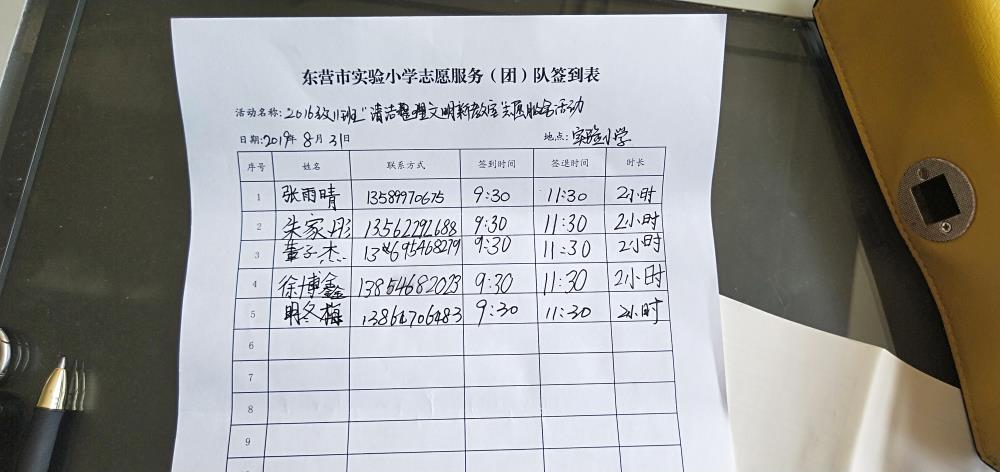 东营市实验小学志愿服务（团）队签到表
活动名称：2016级11班“清洁整理文明新教室”志愿服务活动
日期：2019年8月31日 地点：实验小学
序号 姓名 联系方式 签到时间 签退时间 时长
1 张雨晴 13589970675 9:30 11:30 2小时
2 朱家彤 13562292688 9:30 11:30 2小时
3 董子杰 9:30 11:30 2小时
4 徐博鑫 13854682023 9:30 11:30 2小时
5 明冬梅 9:30 11:30 2小时
6
7
8
9